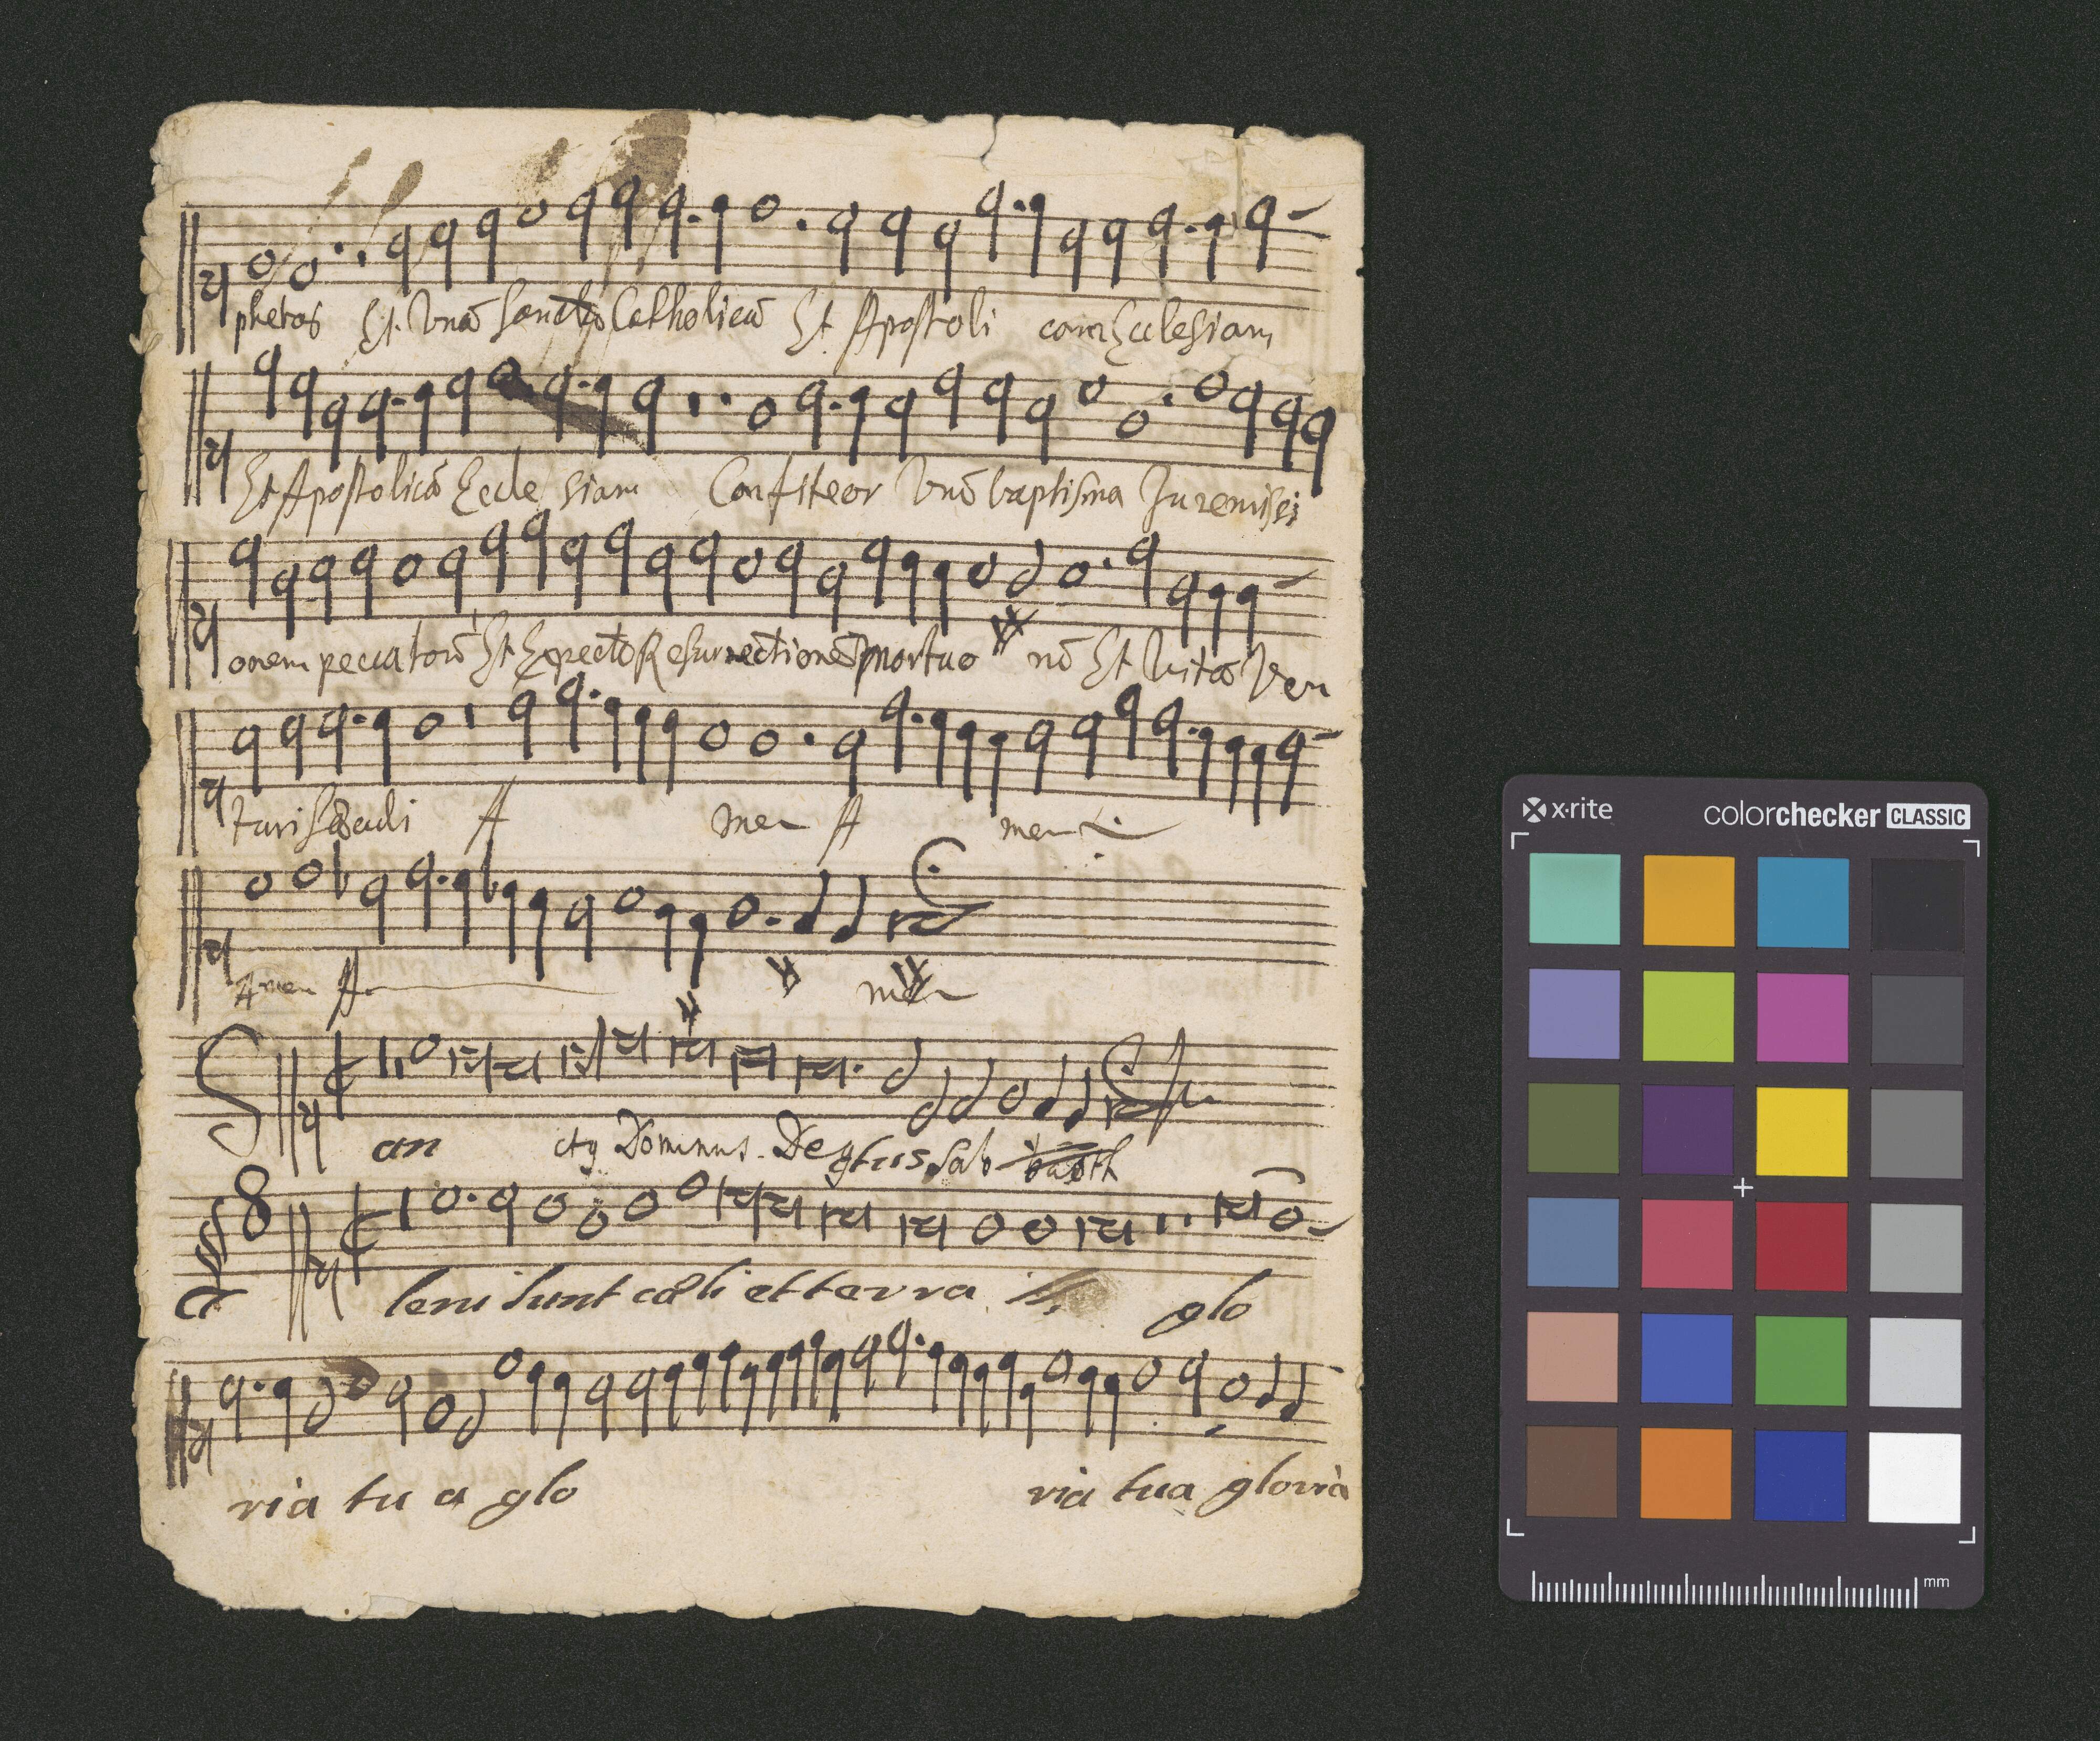 phetas Et Vnã Sanctã Catholicã Et Apostoli cam Ecclesiam
Et Apostolicã Eccle siam Confiteor Vnũ baptisma In remisi
onem peccatorũ Et Expecto Resurrectionẽ mortuo rũ Et Vitã Ven
turi Sæculi A men A men
Amen A men
S
an ctus Dominus Deus Sab
P
leni sunt cœli et terra glo
ria tu a glo ria tua gloria
x·rite colorchecker CLASSIC
mm